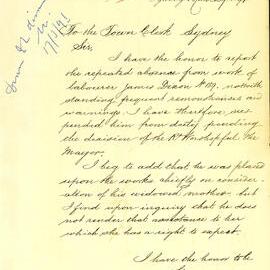 To the Town Clerk Sydney
Sir
I have the honor to report
the repeated absence from work of
labourer James Dixon notwith
standing frequent remonstrances and
warnings. I have therefore sus
pended him from duty pending
the decision of the Rt Worshipful the
Mayor.
I beg to add that he was placed
upon the works chiefly on consider
ation of his widowed mother but
I find upon inquiry that he does
not render that assistance to her
which she has a right to expect.
I have the honor to be